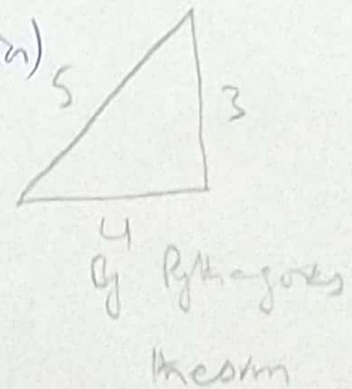 a)
5
3
4
By Pythagoras
theorem